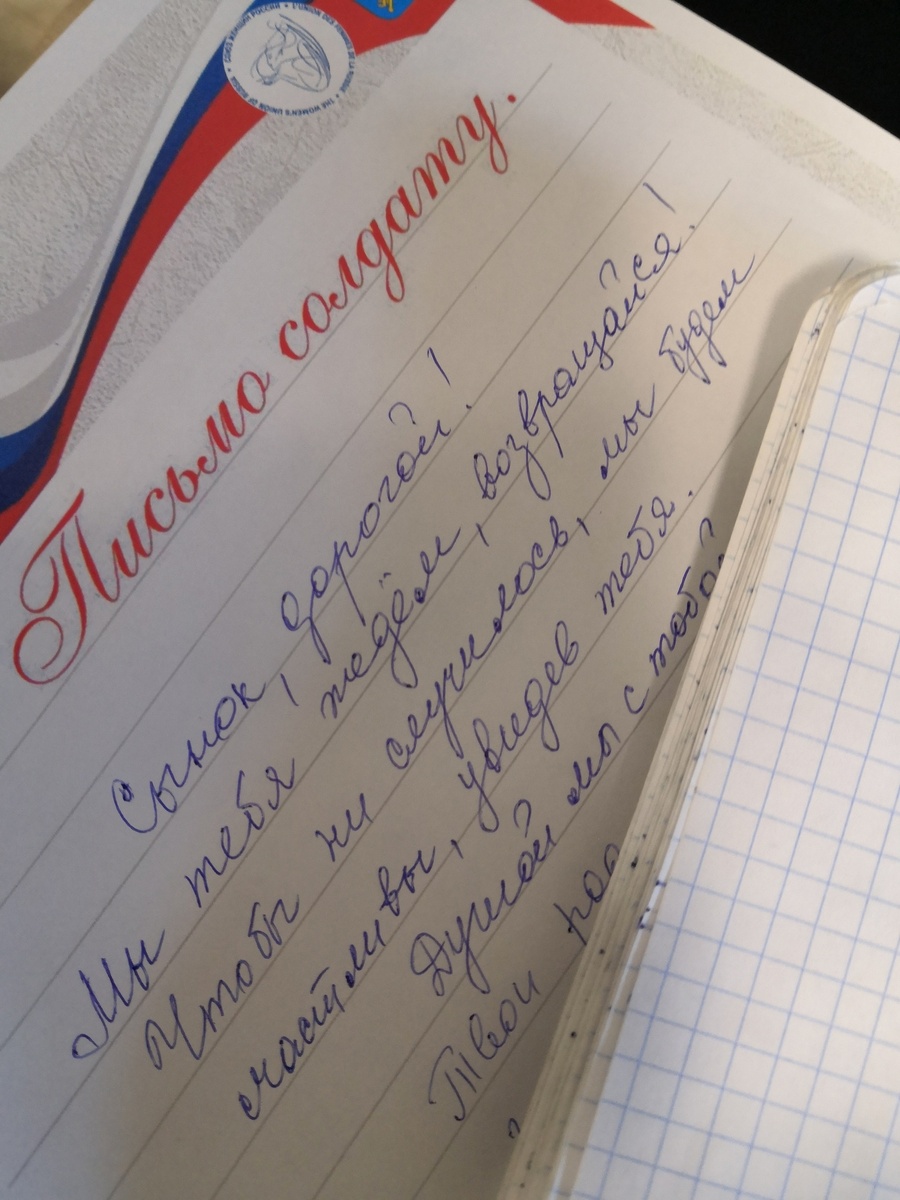 СОЮЗ ЖЕНЩИН РОССИИ • L'UNION DES FEMMES DE LA RUSSIE • THE WOMEN'S UNION OF RUSSIA
Письмо солдату.
Сынок, дорогой!
Мы тебя ждём, возвращайся!
Чтобы ни случилось, мы будем
счастливы, увидев тебя.
Душой мы с тобой
Твои